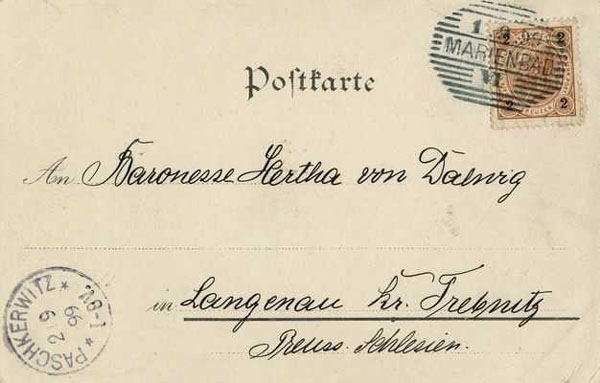 2 2
MARIENBAD
VI
2 2
Postkarte
An Baronesse Hertha von
in Langenau Kr. Trebnitz
Preuss. Schlesien.
* PASCHKERWITZ *
2 9
99